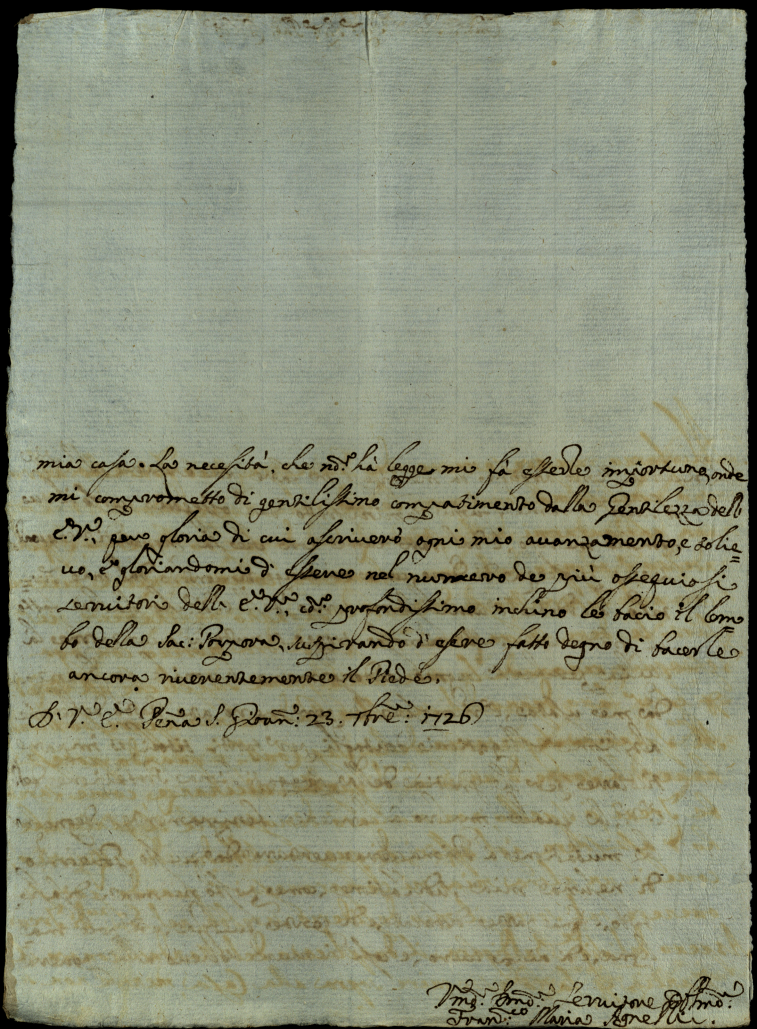 mia casa. La necesità, che nō hà legge mi fà esserle importuno, onde
mi comprometto di gentilissimo compatimento dalla Gentilezza dell
E.V., pero gloria di cui ascriverò ogni mio avanzamento, e solie=
vo, e gloriandomi d'essere nel numero de più ossequiosi
servitori dell' E.V., cō profondissimo inchino le bacio il lem=
bo della Sac: Porpora, suspirando d'esere fatto degno di bacerle
ancora riverentemente il Piede.
D. V. E. Pena S. Gioan: 23. 7bre: 1726
Vmō: Dmō: Servitore
Fran:co Maria Agnelli.